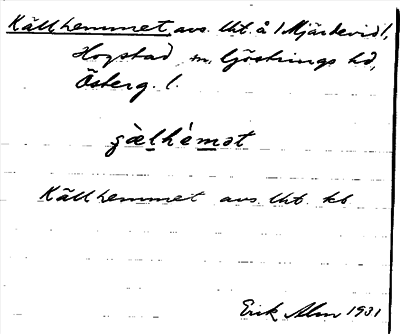 Källhemmet avs. lht. å 1 Mjärdevid 1,
Hogstad sn. Göstrings hd,
Österg. l.
Källhemmet avs. lht. kb
Erik Alm 1931